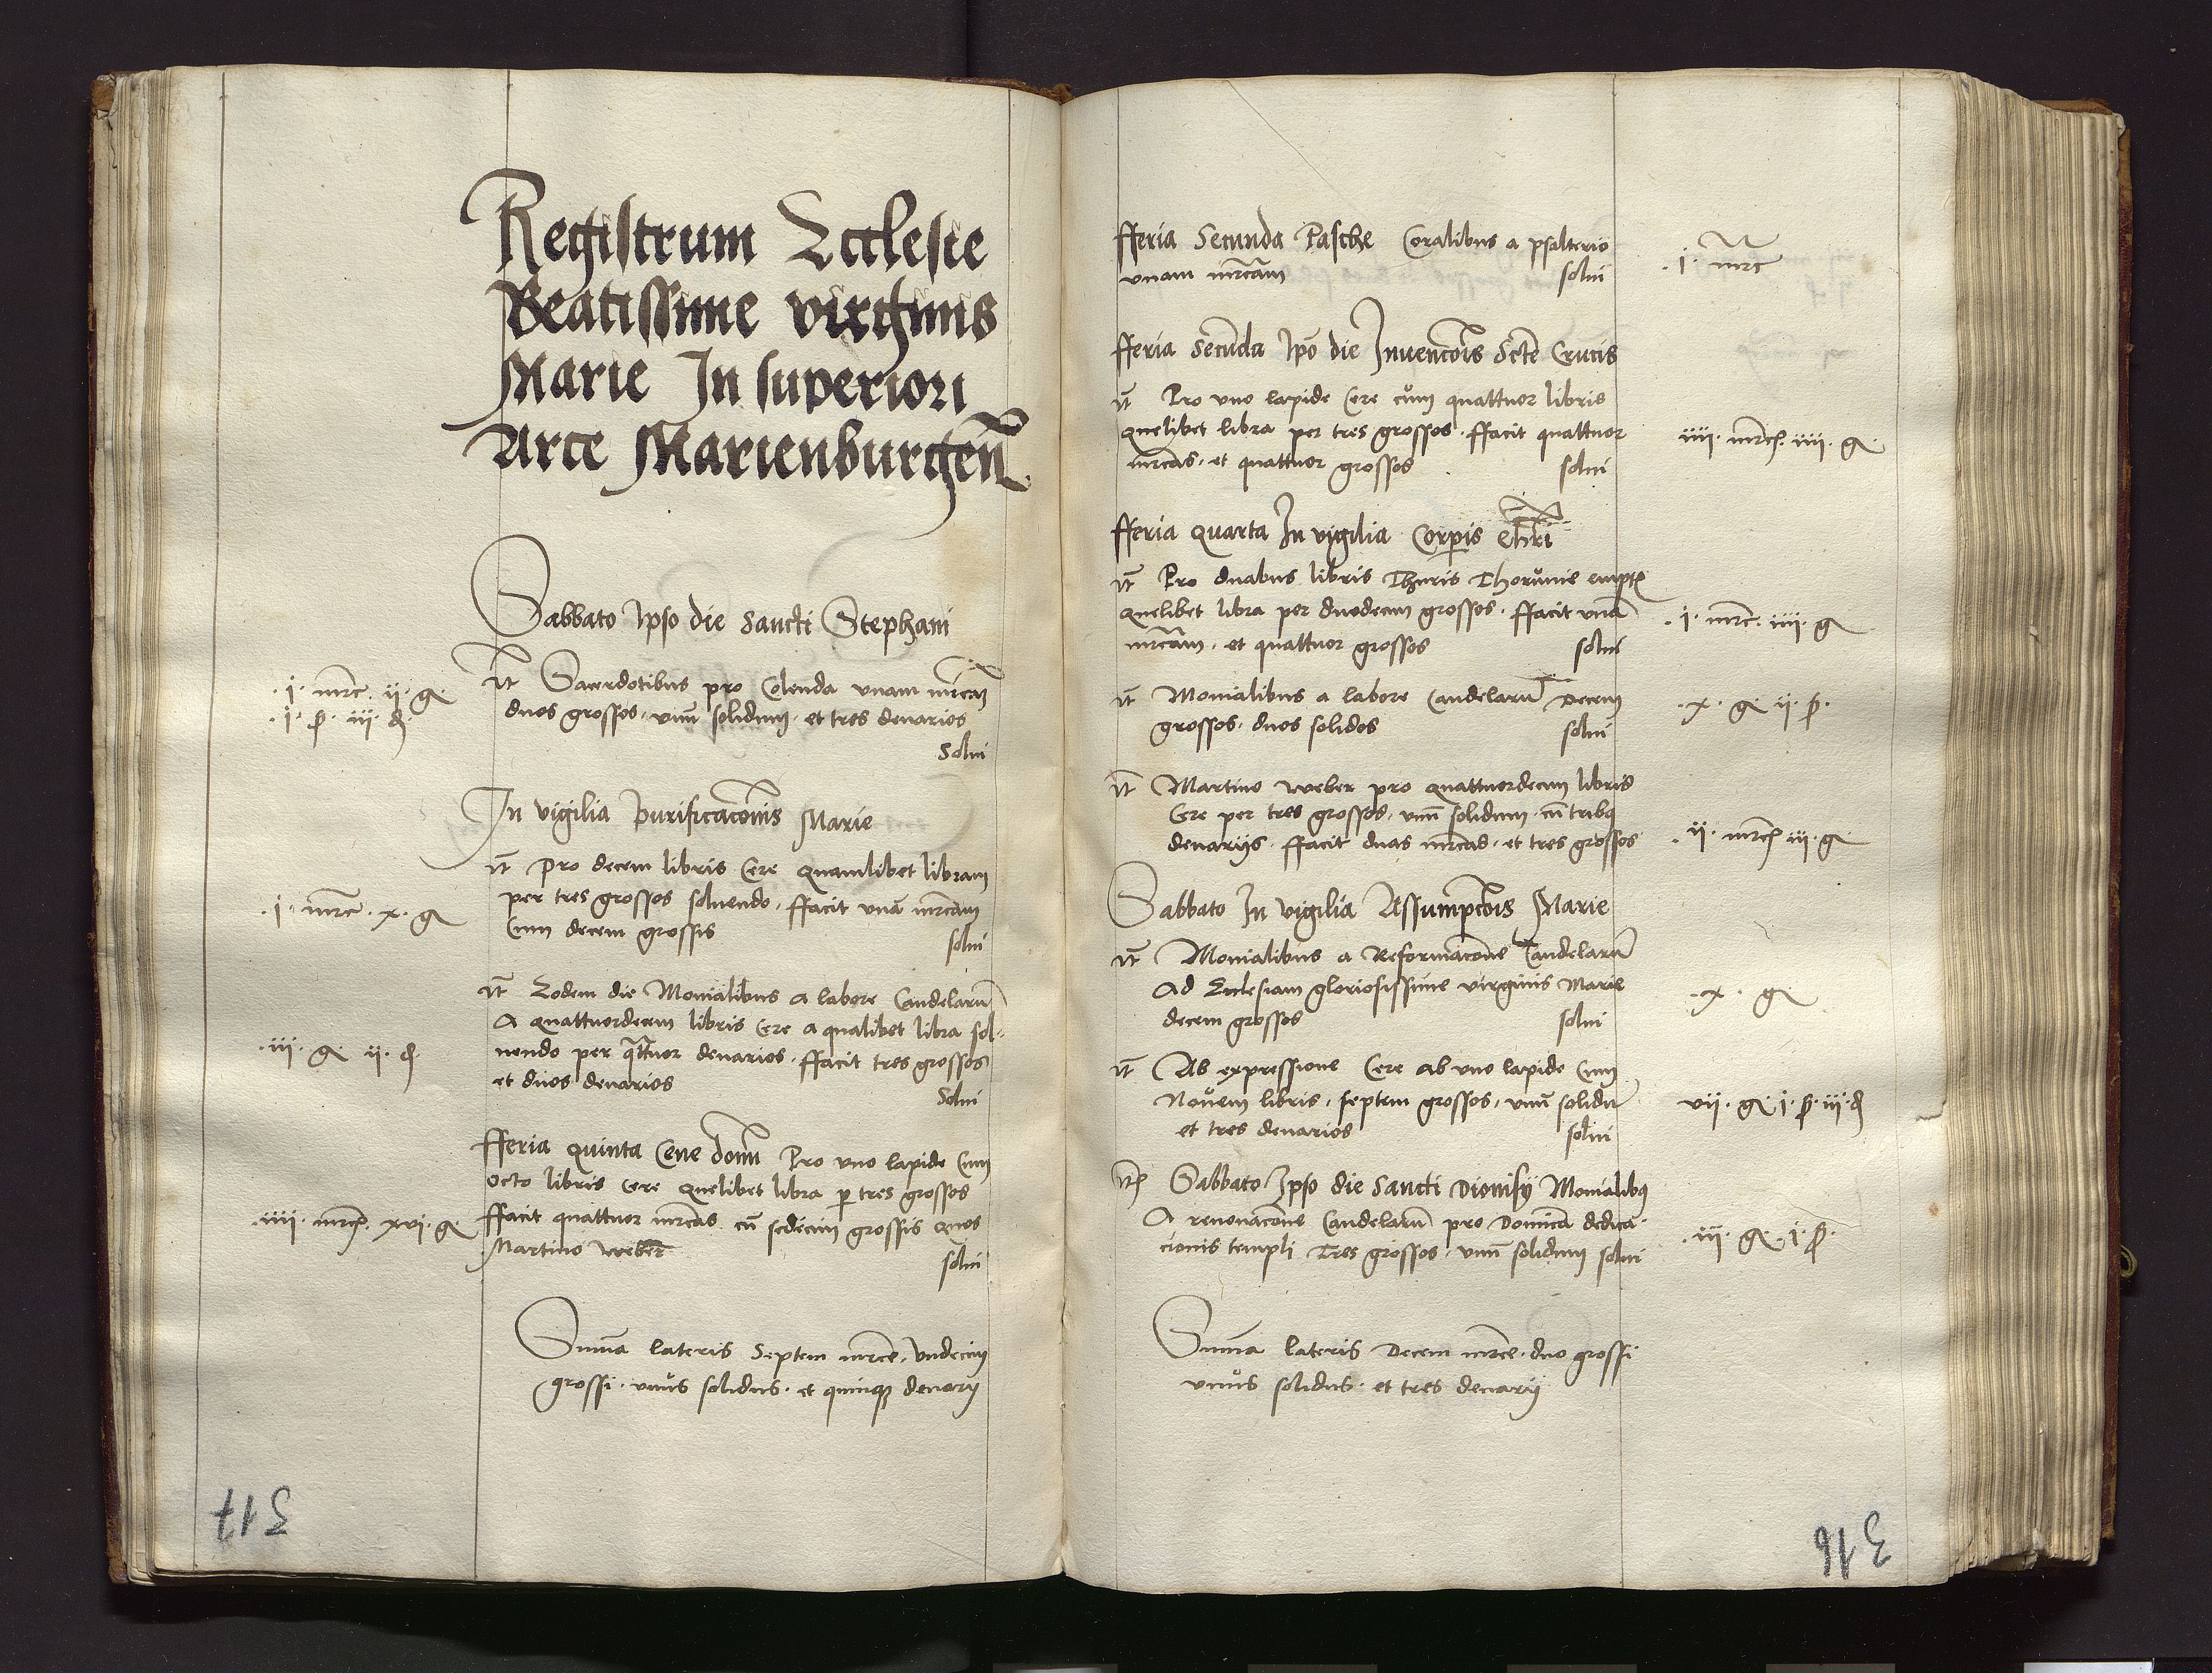 Registrum Ecclesie
Beatissime virginis
Marie In superiori
Arce Marienburgen̄
Sabbato Ipso die Sancti Stephani
.i. mrc. ii. g.
.i. ß. iii. d.
It Sacerdotibus pro Colenda unam mrcam
duos grossos. unū solidum. et tres denarios
Solui
In vigilia Purificacōnis Marie
.i. mrc. x. g
It Pro decem libris Cere quamlibet libram
per tres grossos soluendo. ffacit unā mrcam
Cum decem grossis
solui
.iii. g. ii. d.
It Eodem die Monialibus a labore Candelarū
A quattuordecim libris Cere a qualibet libra sol-
uendo per qattuor denarios. ffacit tres grossos
et duos denarios
Solui
.iiii. mrc. xvi. g.
fferia quinta Cene domī Pro uno lapide Cum
octo libris cere quelibet libra p tres grossos
ffacit quattuor mrcas cū sedecim grossis quos
Martino Weber
solui
Suma lateris Septem mrce. undecim
grossi. unus solidus. et quinque denarij
317
fferia Secunda Pasche Coralibus a psalterio
unam mrcam solui
.i. mrc
fferia Secunda Ipō die Inuencōis Scte Crucis
It Pro uno lapide Cere cum quattuor libris
quelibet libra per tres grossos. ffacit quattuor
mrcas. et quattuor grossos solui
iiii. mrc. iiii. g.
fferia quarta In vigilia Corpis Chri
It Pro duabus libris Thuris Thorunie empt
quelibet libra per duodecim grossos. ffacit unā
mrcam. et quattuor grossos solui
.i. mrc. iiii. g
It Monialibus a labore Candelarū Decem
grossos. duos solidos solui
.x. g. ii. ß.
It Martino Weber pro quattuordecim libris
Cere per tres grossos, unū solidum. cū tribus
denarijs. ffacit duas mrcas. et tres grossos
.ii. mrc iii. g.
Sabbato In vigilia Assumpcōis Marie
It Monialibus a Reformacōne Candelarū
Ad Ecclesiam gloriosissime virginis Marie
decem grossos solui
.x. g.
It Ab expressione Cere ab uno lapide Cum
Nouem libris. septem grossos, unū solidū
et tres denarios solui
vii. g. i. ß. iii. d
It Sabbato Ipso die Sancti Dionisij Monialibus
A renouacōne Candelarū pro Dominica dedica-
cionis templi Tres grossos. unū solidum solui
.iii. g. i. ß.
Suma lateris Decem mrce. duo grossi
unus solidus. et tres denarij
316